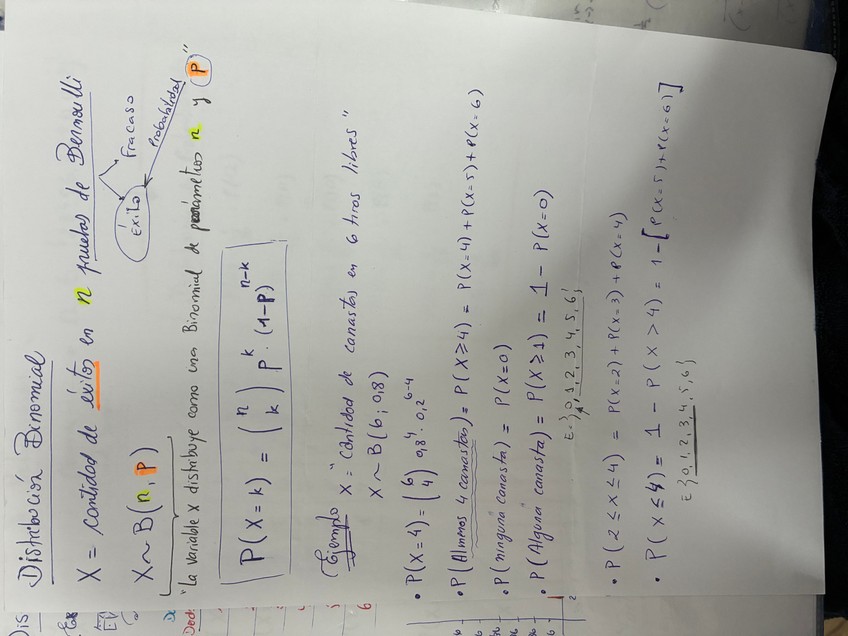 Distribución Binomial
X = cantidad de éxitos en n pruebas de Bernoulli
Éxito Fracaso
Probabilidad
X ~ B(n, p)
"La variable X distribuye como una Binomial de parámetros n y p"
P(X = k) = (n k) p^k · (1-p)^(n-k)
Ejemplo X = "Cantidad de canastas en 6 tiros libres"
X ~ B(6; 0,8)
• P(X = 4) = (6 4) 0,8^4 · 0,2^(6-4)
• P(Al menos 4 canastas) = P(X ≥ 4) = P(X = 4) + P(X = 5) + P(X = 6)
• P(ninguna canasta) = P(X = 0)
• P(Alguna canasta) = P(X ≥ 1) = 1 - P(X = 0)
E = {0, 1, 2, 3, 4, 5, 6}
• P(2 ≤ X ≤ 4) = P(X = 2) + P(X = 3) + P(X = 4)
• P(X ≤ 4) = 1 - P(X > 4) = 1 - [P(X = 5) + P(X = 6)]
E {0, 1, 2, 3, 4, 5, 6}